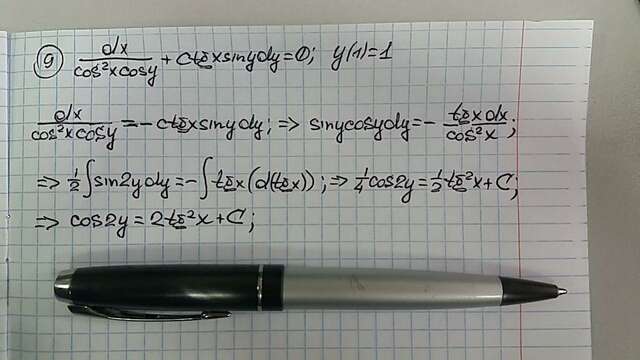 ⑨ dx/(cos²x cosy) + ctgx siny dy = 0; y(1)=1
dx/(cos²x cosy) = - ctgx siny dy; => siny cosy dy = - tgx dx/cos²x;
=> 1/2 ∫ sin2y dy = - ∫ tgx (d(tgx)); => 1/4 cos2y = 1/2 tg²x + C;
=> cos2y = 2tg²x + C;